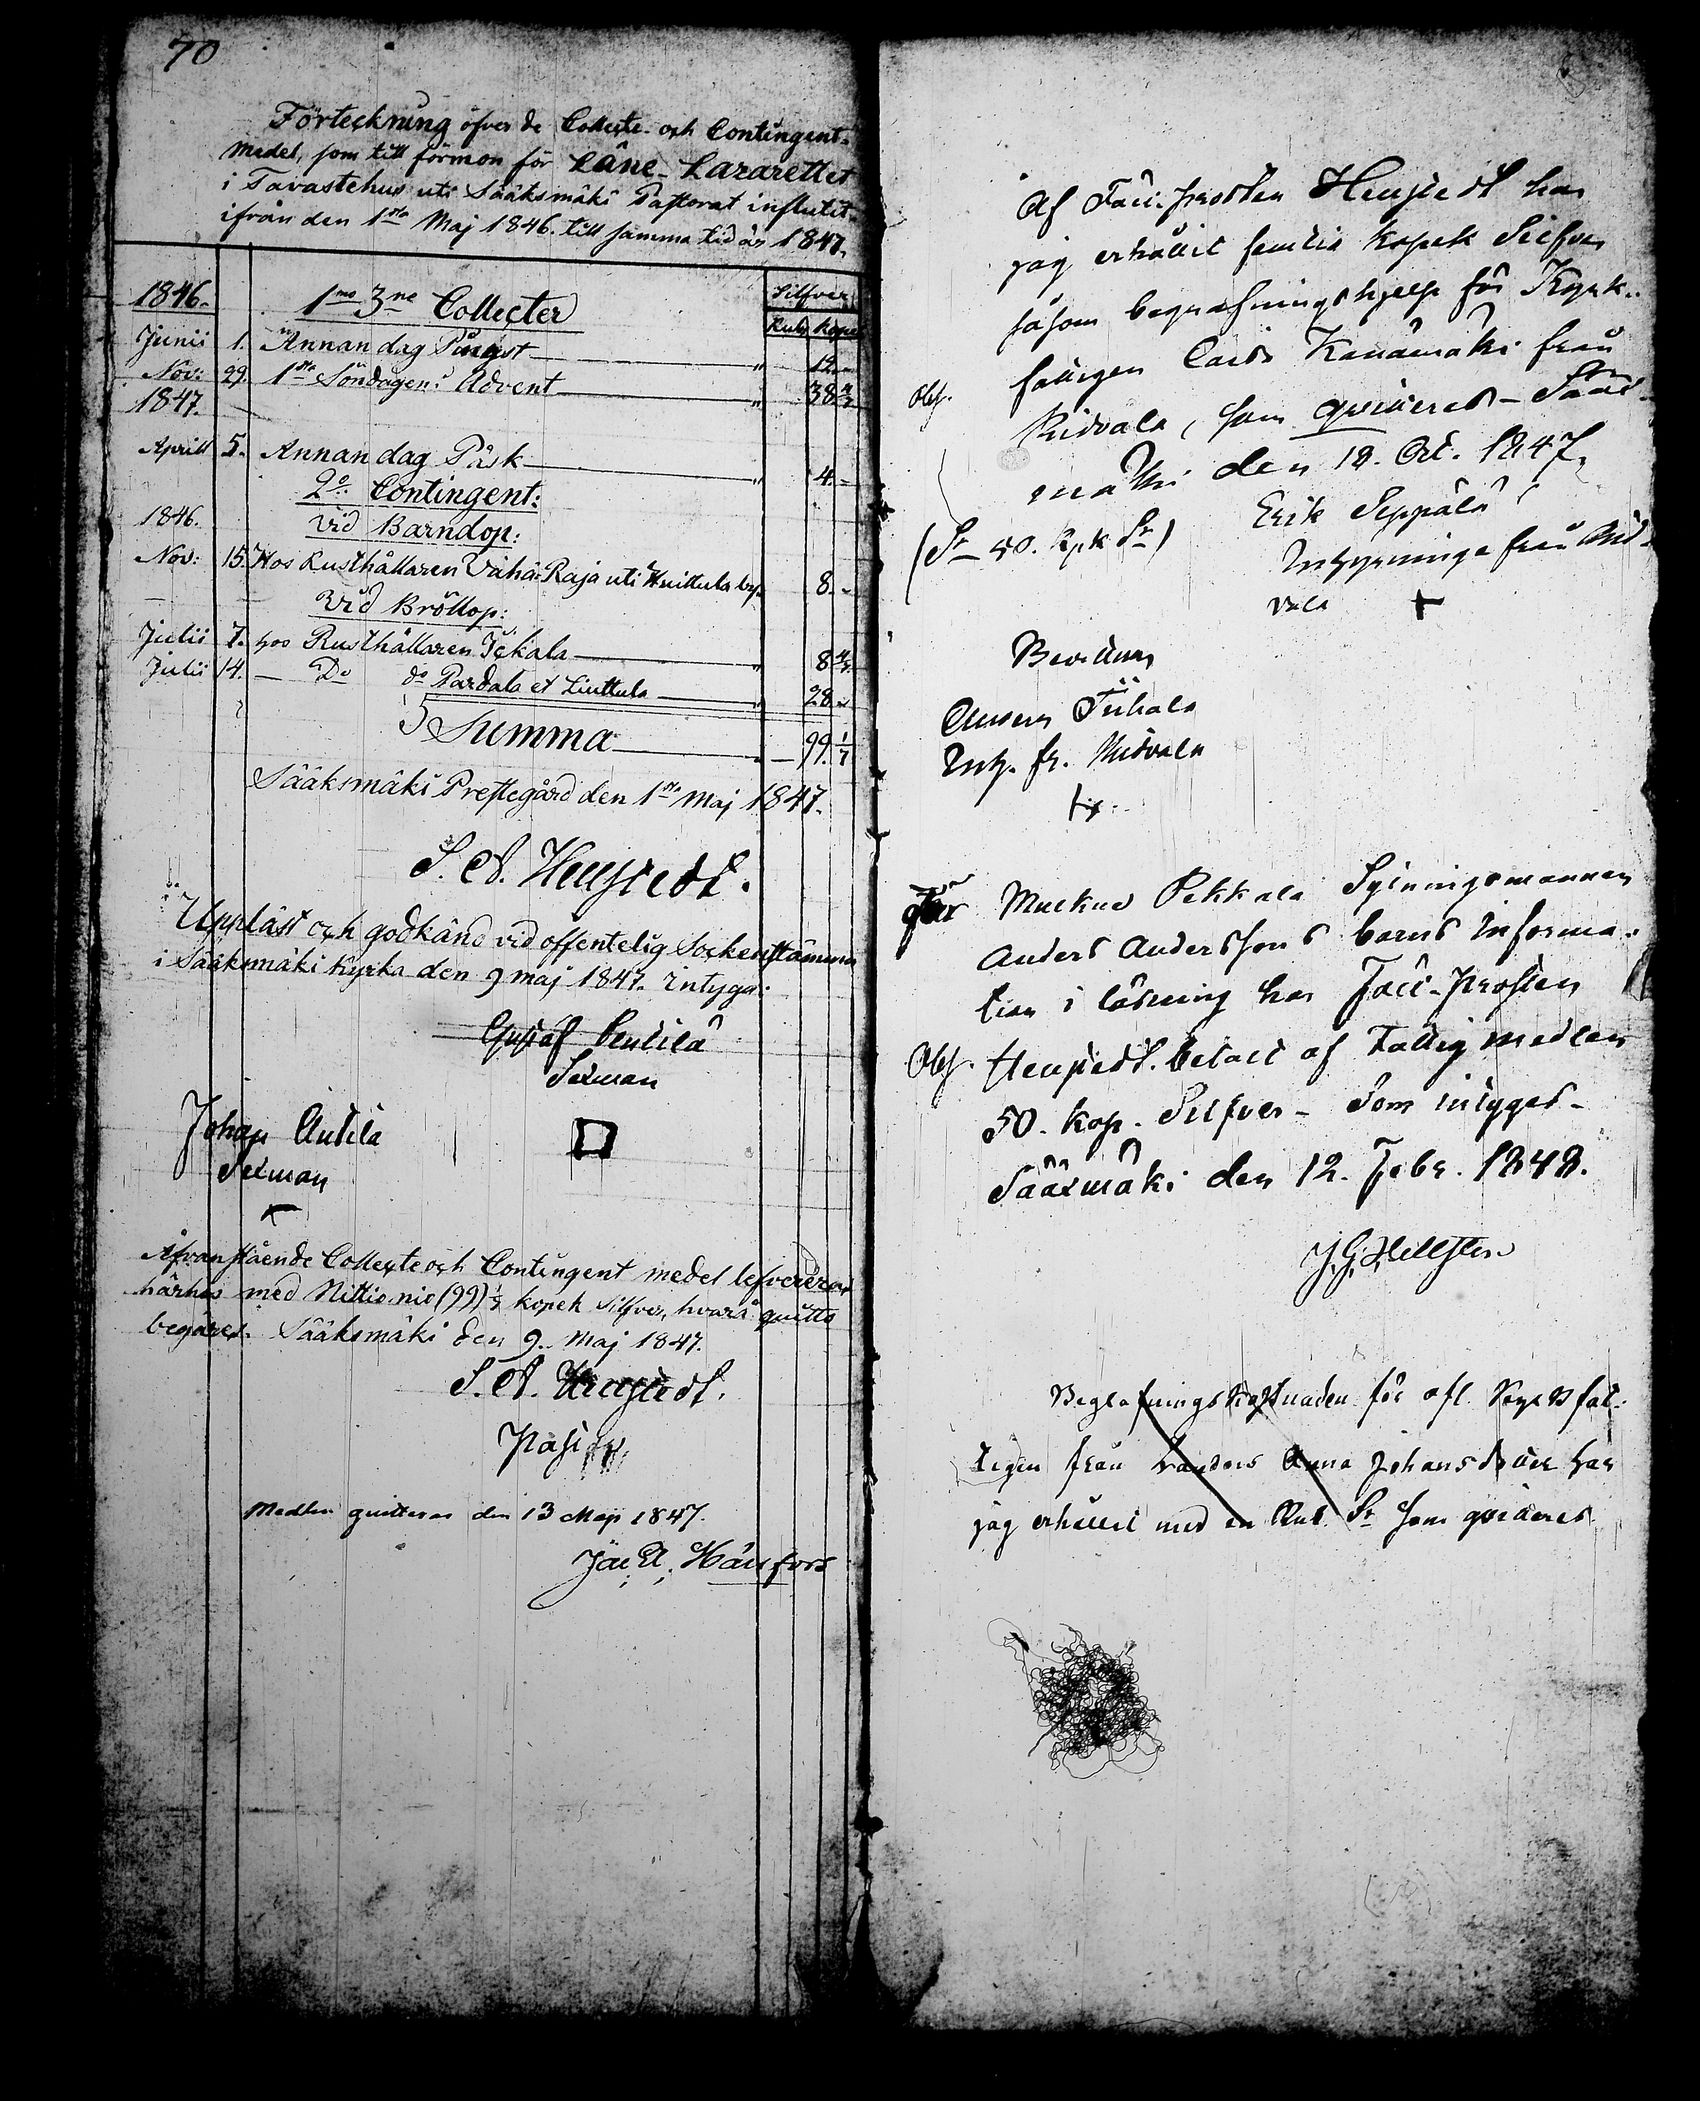 70
Förteckning öfver de Collecte- och Contingent-
medel, som till förmon för Läne-Lazarettet
i Tavastehus uti Sääksmäki Pastorat influtit
ifrån den 1sta Maj 1846. till samma tid år 1847.
Silfver
1846. 1mo 3ne Collecter Rub. Kopek
Junii 1. Annandag Pingst " 12.
Nov: 29. 1sta Söndagen i Advent " 38 4/7
1847.
Aprill 5. Annandag Påsk " 4. -
2o. Contingent:
1846. vid Barndop:
Nov: 15. Hos Rusthållaren Vähä-Raja uti Huittula by 8. -
Vid Bröllop:
Julii 7. hos Rusthållaren Jckala " 8 4/7
Julii 14. — Do do Pardala et Liuttula " 28. -
Summa — 99. 1/7
Sääksmäki Prestegård den 1sta Maj 1847.
S. A. Hellstedt.
Uppläst och godkänd vid offentelig Sockenstämma
i Sääksmäki Kyrka den 9 maj 1847. intyga:
Gustaf
Sexman
Johan Antila
Sexman
Åfvanstående Collecte och Contingent medel lefvereras
härhos med Nittio nio (99) 1/7 kopek Silfver, hvarå quitto
begäres. Sääksmäki den 9. Maj 1847.
S. A. Hellstedt.
Past
Medlen quitteras den 13 Maji 1847.
Hällfors
Af Fält-prosten Hellstedt har
jag erhållit femtio kopek Silfver
såsom begrafningshjelp för Kyrk-
fattigen Carls Kanamäki från
Obs.
Ridvala, som qvitteras - Sääx-
mäki den 18. Oct. 1847.
(Sr 50. kpk Sr) Erik Seppälä
Inhysninge från Rid-
vala +
Bevittnar
Tiihala
Inh. fr. Ridvala
För Muckus Pekkala Spinningsmannen
Anders Anderssons barns informa-
tion i läsning har Fält-prosten
Obs. Hellstedt betalt af Fattig medlen
50. kop. Silfver - Som intygas -
Sääxmäki den 12. Febr. 1848.
J. G. Hellsten
Begrafningskostnaden för afl. Kyrksfat-
tigen från Anna Johansdotter har
jag erhållit med en Rub. Sr som qvitteres